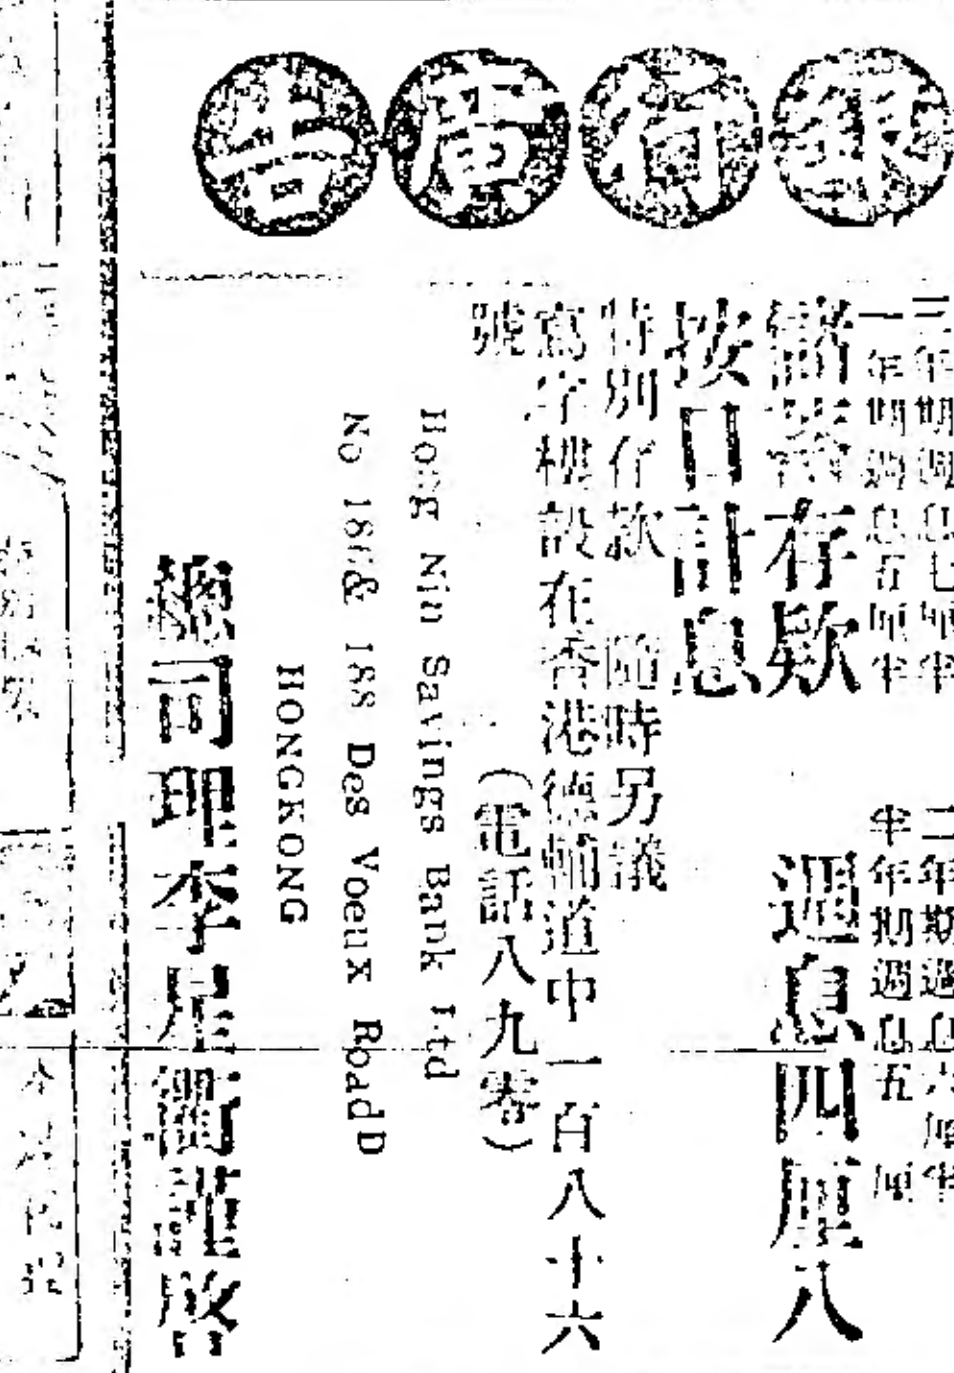 銀行廣告
三年期週息七厘半
二年期週息六厘半
一年期週息五厘半
半年期週息五厘
儲蓄存款
週息四厘八
按日計息
特別存款 隨時另議
寫字樓設在香港德輔道中一百八十六
號
(電話八九零)
Hong Nin Savings Bank Ltd
No 186& 188 Des Voeux Road D
HONGKONG
總司理李星衢謹啓